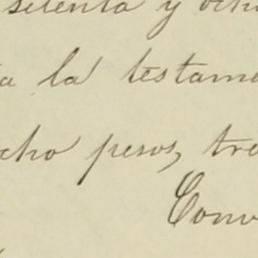 setenta y ocho
la testame
cho pesos, tre
Conv